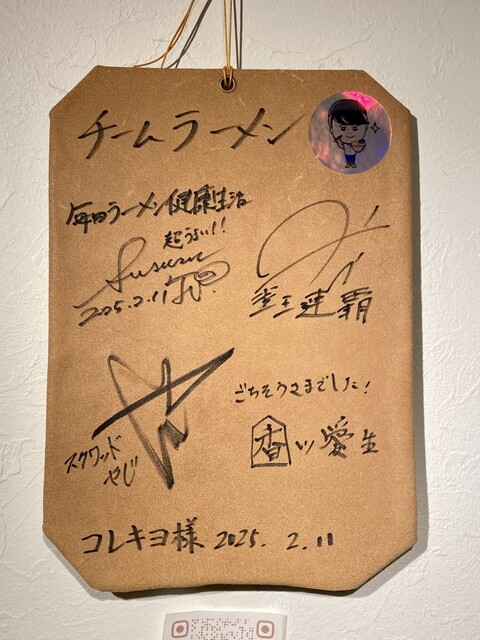 チームラーメン
毎日ラーメン健康生活
超うまい!!
Susuru
2025.2.11
スクワッド
やじ
ごちそうさまでした!
香川愛生
コレキヨ様 2025. 2.11